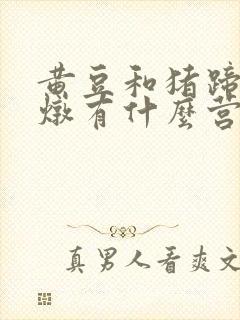 黄豆和猪蹄
燉有什麼营
真男人看爽文